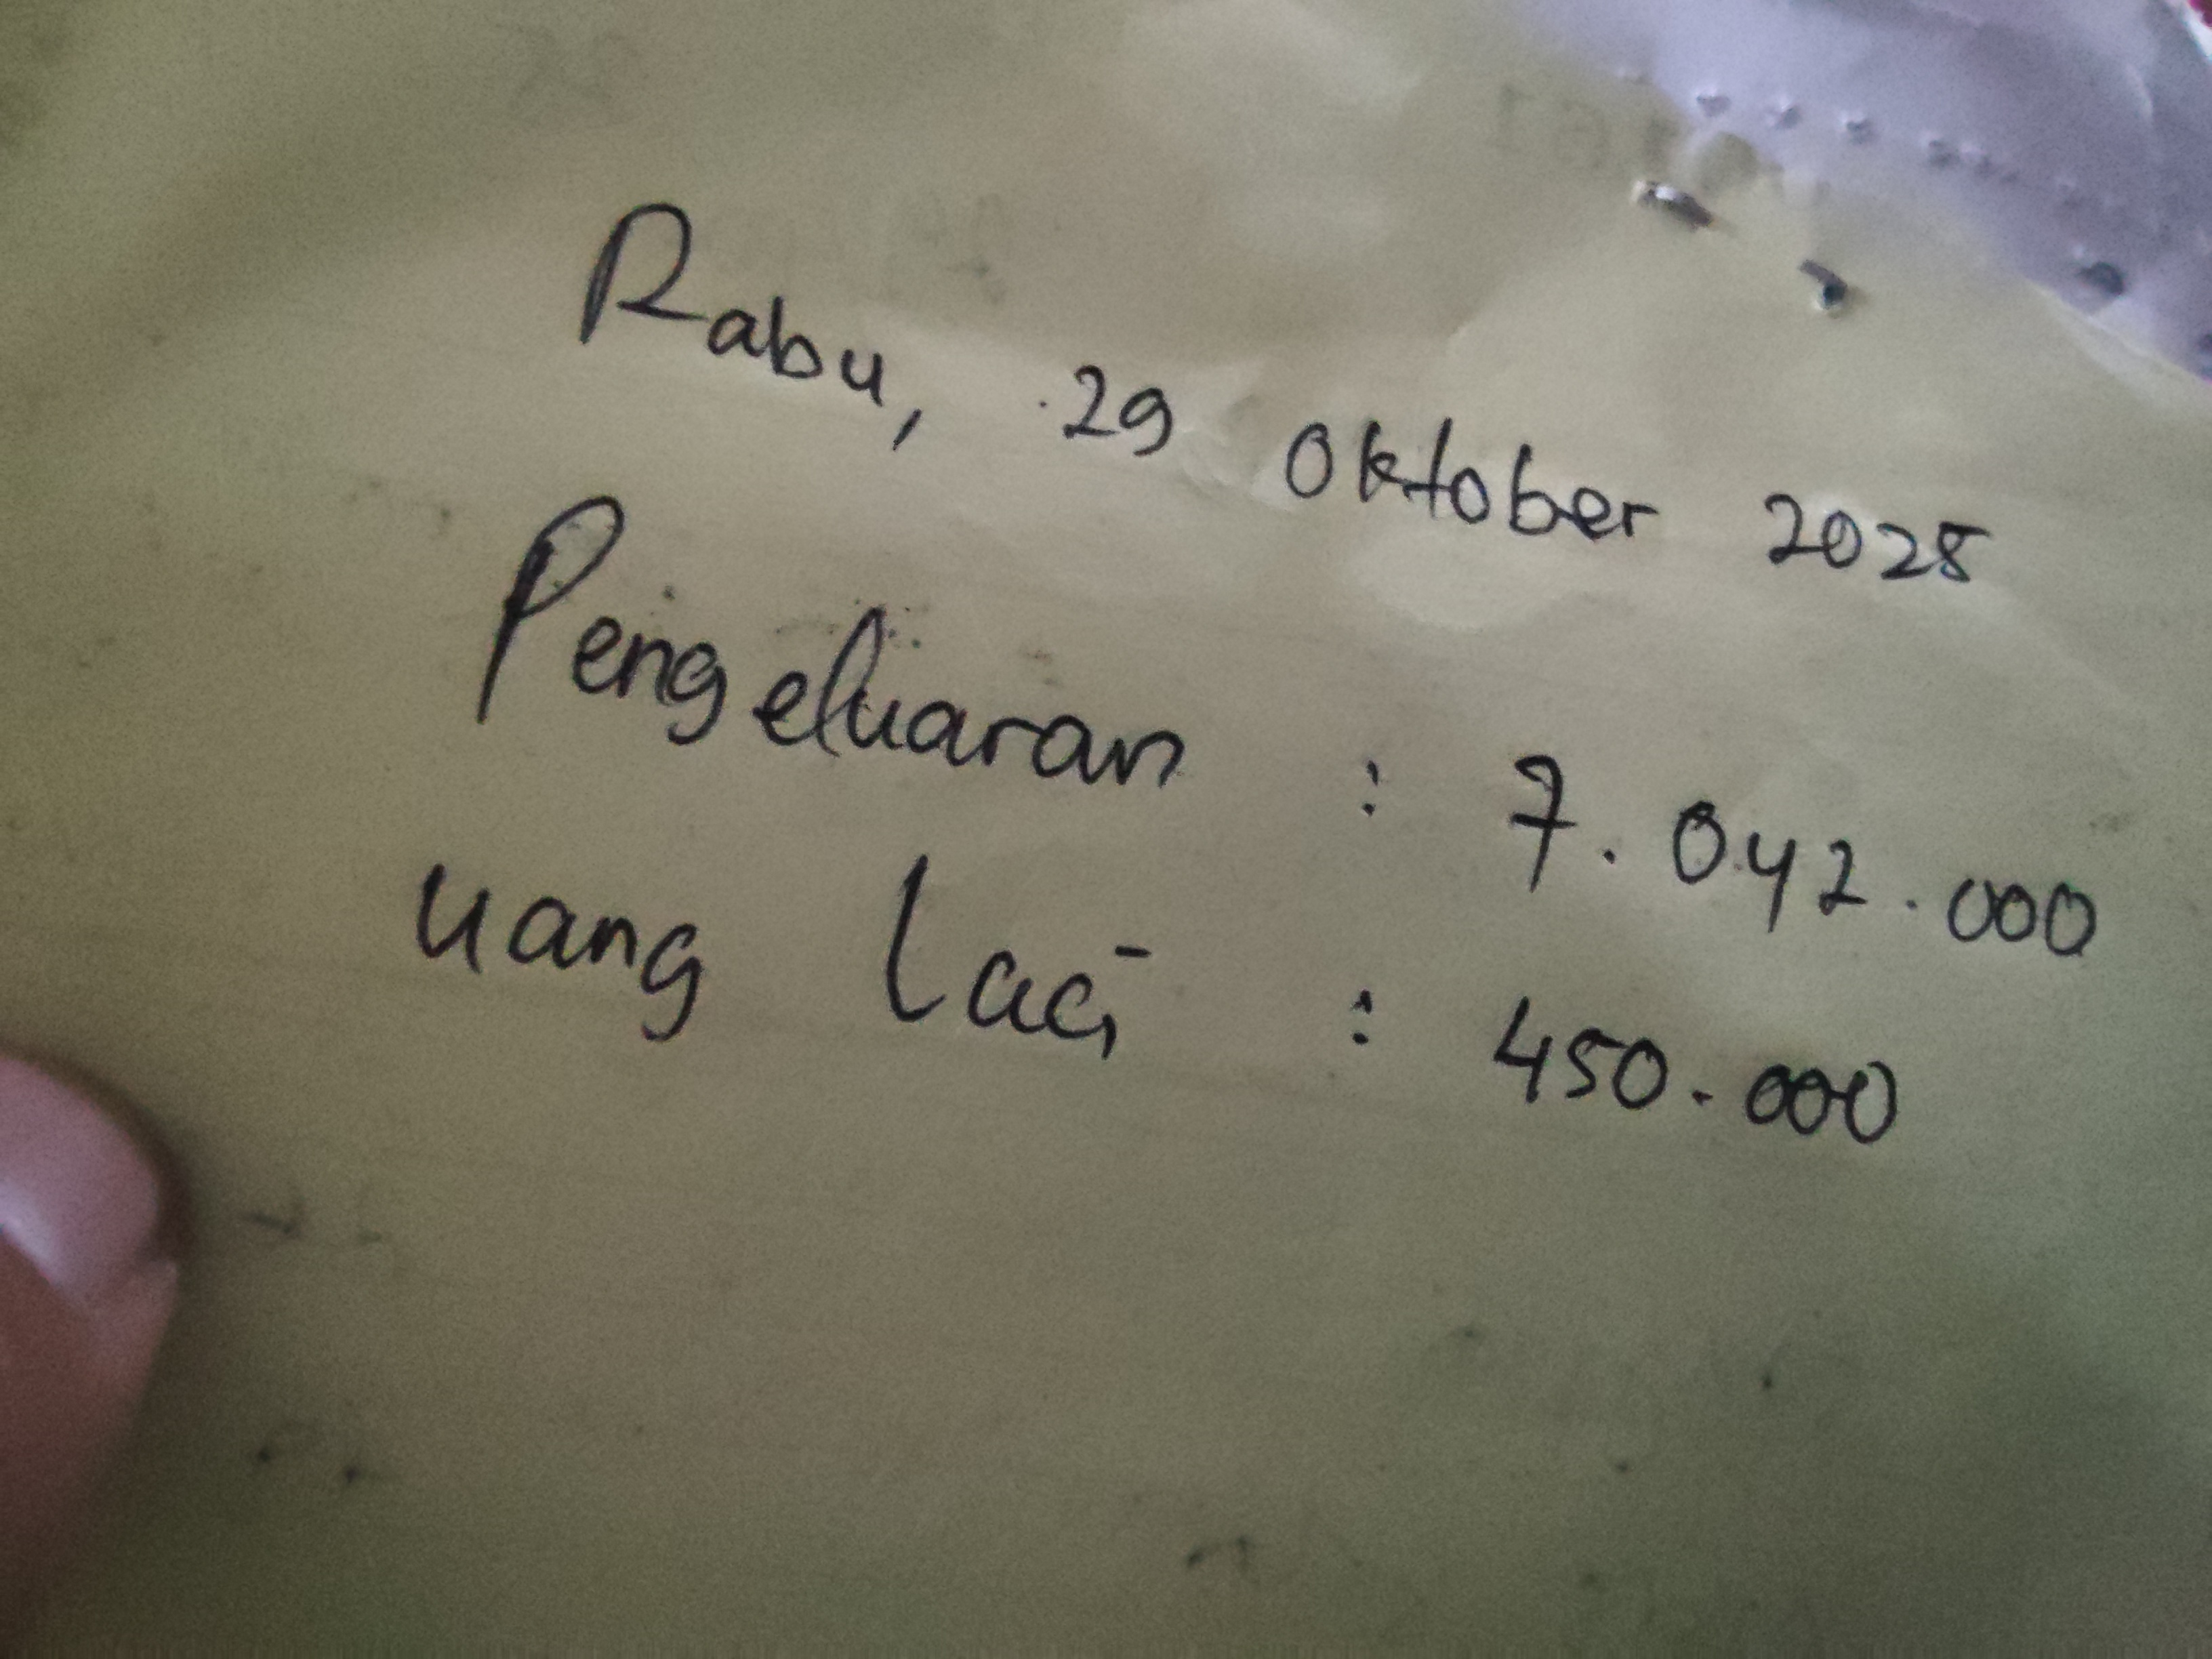 Rabu, 29 Oktober 2025
Pengeluaran : 7.042.000
uang laci : 450.000